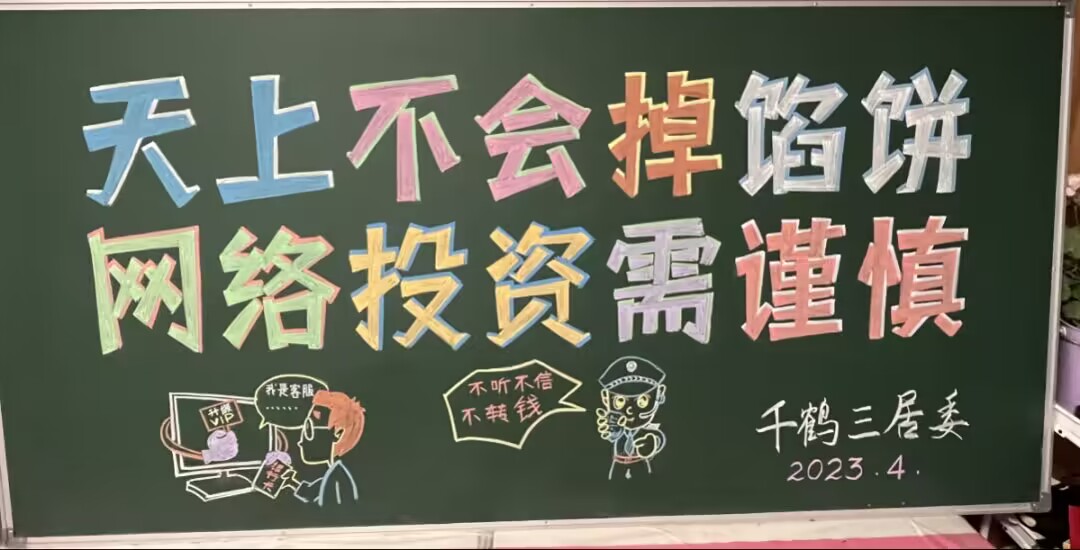 天上不会掉馅饼
网络投资需谨慎
我是客服
......
升级
VIP
银行卡
不听不信
不转钱
千鹤三居委
2023.4.